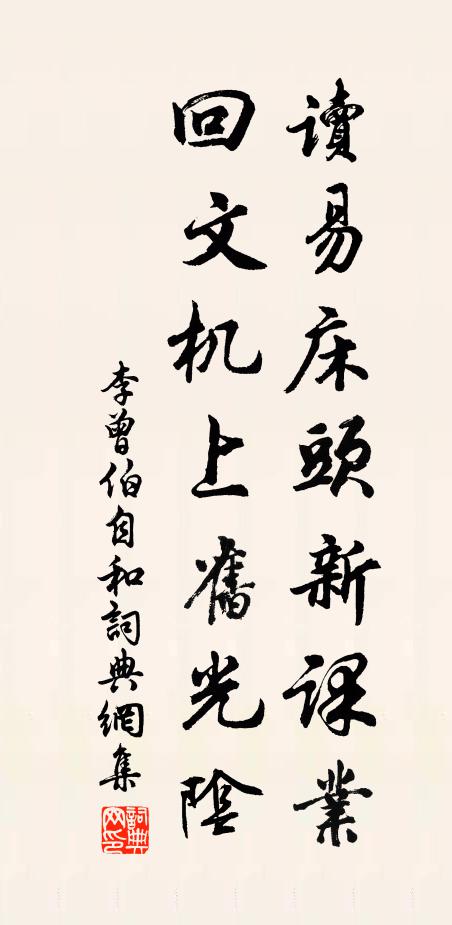 讀易床頭新課業
回文机上舊光陰
李曾伯自和詞典網集
詞典
网印